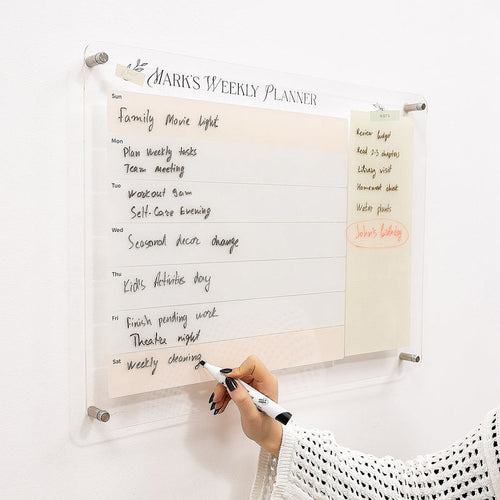 Mark's Weekly Planner
Sun
Family Movie Night
Mon
Plan Weekly tasks
Team meeting
Tue
Workout 9am
Self-Care Evening
Wed
Seasonal decor change
Thu
Kid's Activities day
Fri
Finish pending work
Theater night
Sat
Weekly cleaning
NOTE
Review budget
Read 2-3 chapters
Library visit
Homework check
Water plants
John's Birthday